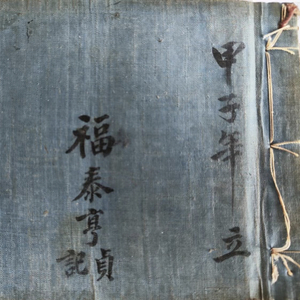 甲子年 立
福泰亨貞記